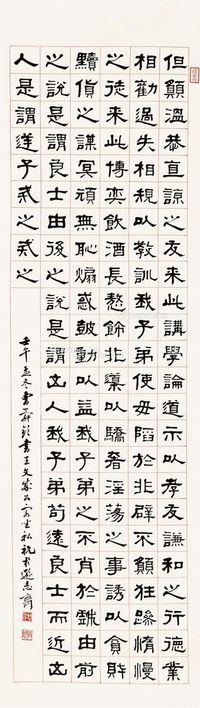 但願溫恭直諒之友來此講學論道示以孝友謙和之行德業
相勸過失相規以教訓我子弟使毋陷於非僻不願狂躁惰慢
之徒來此博奕飲酒長傲飾非導以驕奢淫蕩之事誘以貪財
黷貨之謀冥頑無恥煽惑鼓動以益我子弟之不肖於戲由前
之說是謂良士由後之說是謂凶人我子弟苟遠良士而近凶
人是謂逆子戒之戒之
壬午孟冬曹書王文成公客坐私祝於遜志齋